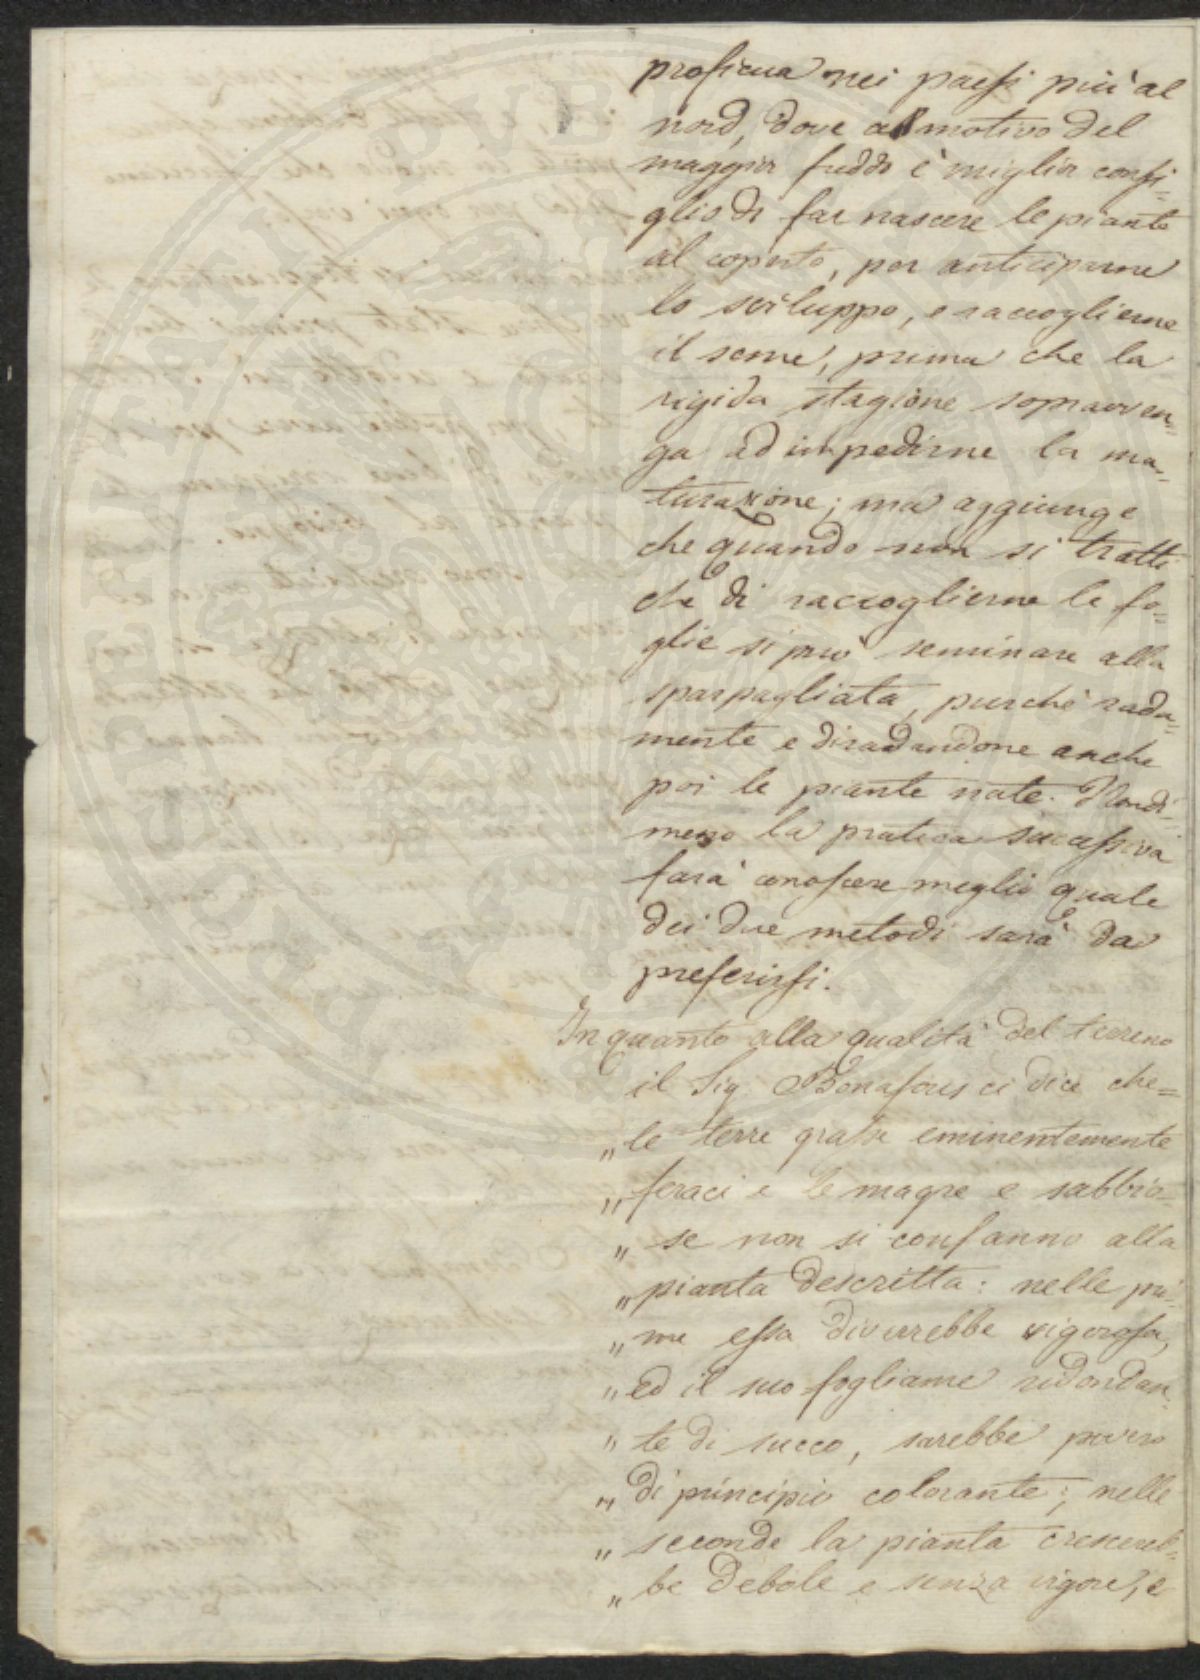 proficua nei paesi più al
nord, dove al motivo del
maggior freddo è miglior consi=
glio di far nascere le piante
al coperto, per anticiparne
lo sviluppo, e raccoglierne
il seme, prima che la
rigida stagione sopravven=
ga ad impedirne la ma=
turazione; ma aggiunge
che quando non si tratti
che di raccoglierne le fo=
glie si può seminare alla
sparpagliata, purchè rada=
mente e diradandone anche
poi le piante nate. Nondi=
meno la pratica successiva
farà conoscere meglio quale
dei due metodi sarà da
preferirsi.
In quanto alla qualità del terreno
il Sig. Bonafous ci dice che=
„ le terre grasse eminentemente
„ feraci e le magre e sabbio=
„ se non si confanno alla
„ pianta descritta: nelle pri=
„ me essa diverrebbe vigorosa,
„ ed il suo fogliame ridondan
„ te di succo, sarebbe povero
„ di principio colorante; nelle
„ seconde la pianta crescereb=
„ be debole e senza vigore, e